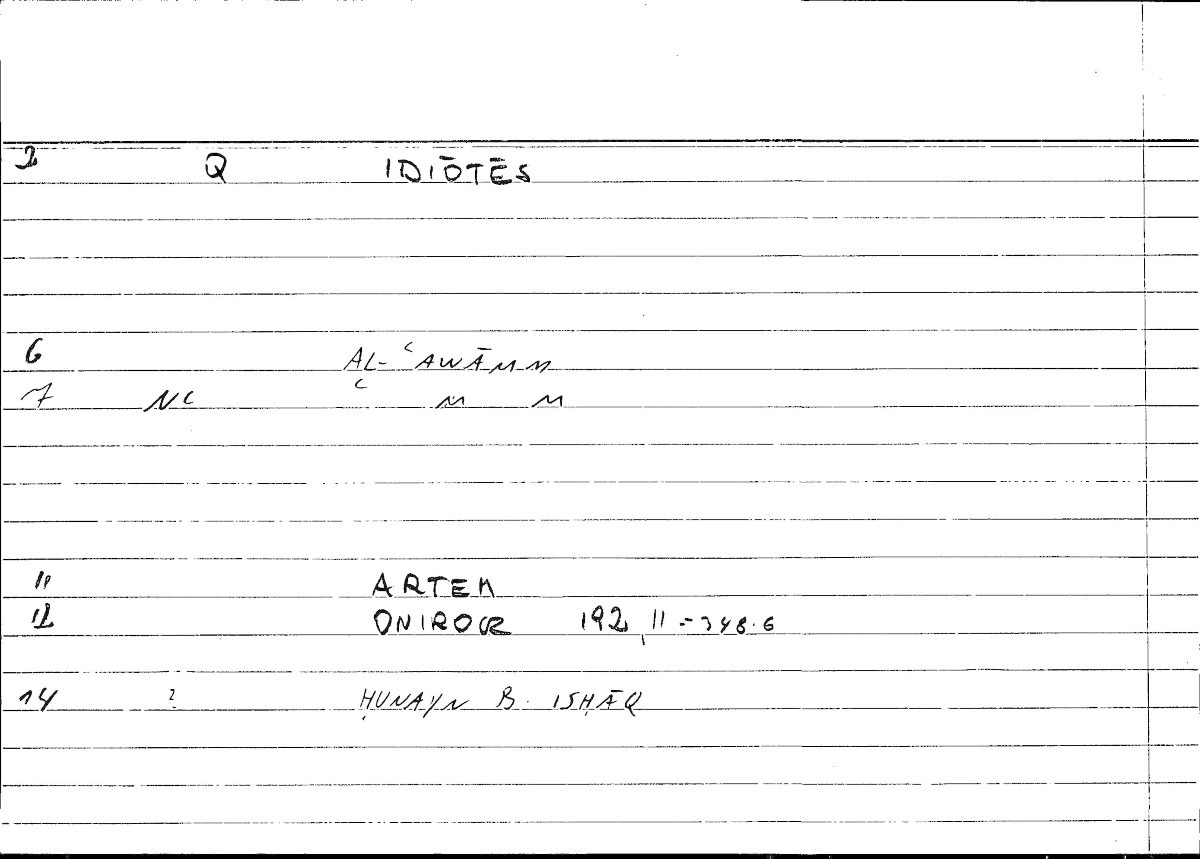 2 Q IDIŌTĒS
6 AL-ʿAWĀMM
7 NC ʿ M M
11 ARTEM
12 ONIROCR 192, 11 = 348.6
14 ? ḤUNAYN B. ISḤĀQ